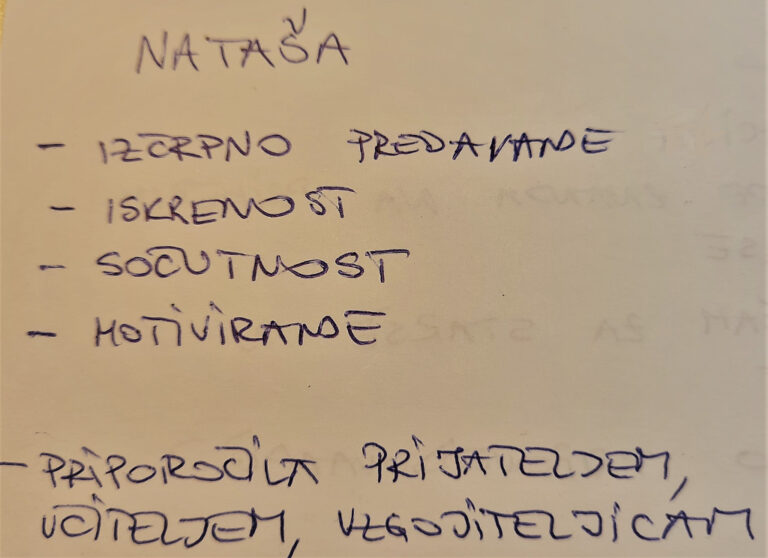 NATAŠA
- IZČRPNO PREDAVANJE
- ISKRENOST
- SOČUTNOST
- MOTIVIRANJE
- PRIPOROČILA PRIJATELJEM,
UČITELJEM, VZGOJITELJICAM